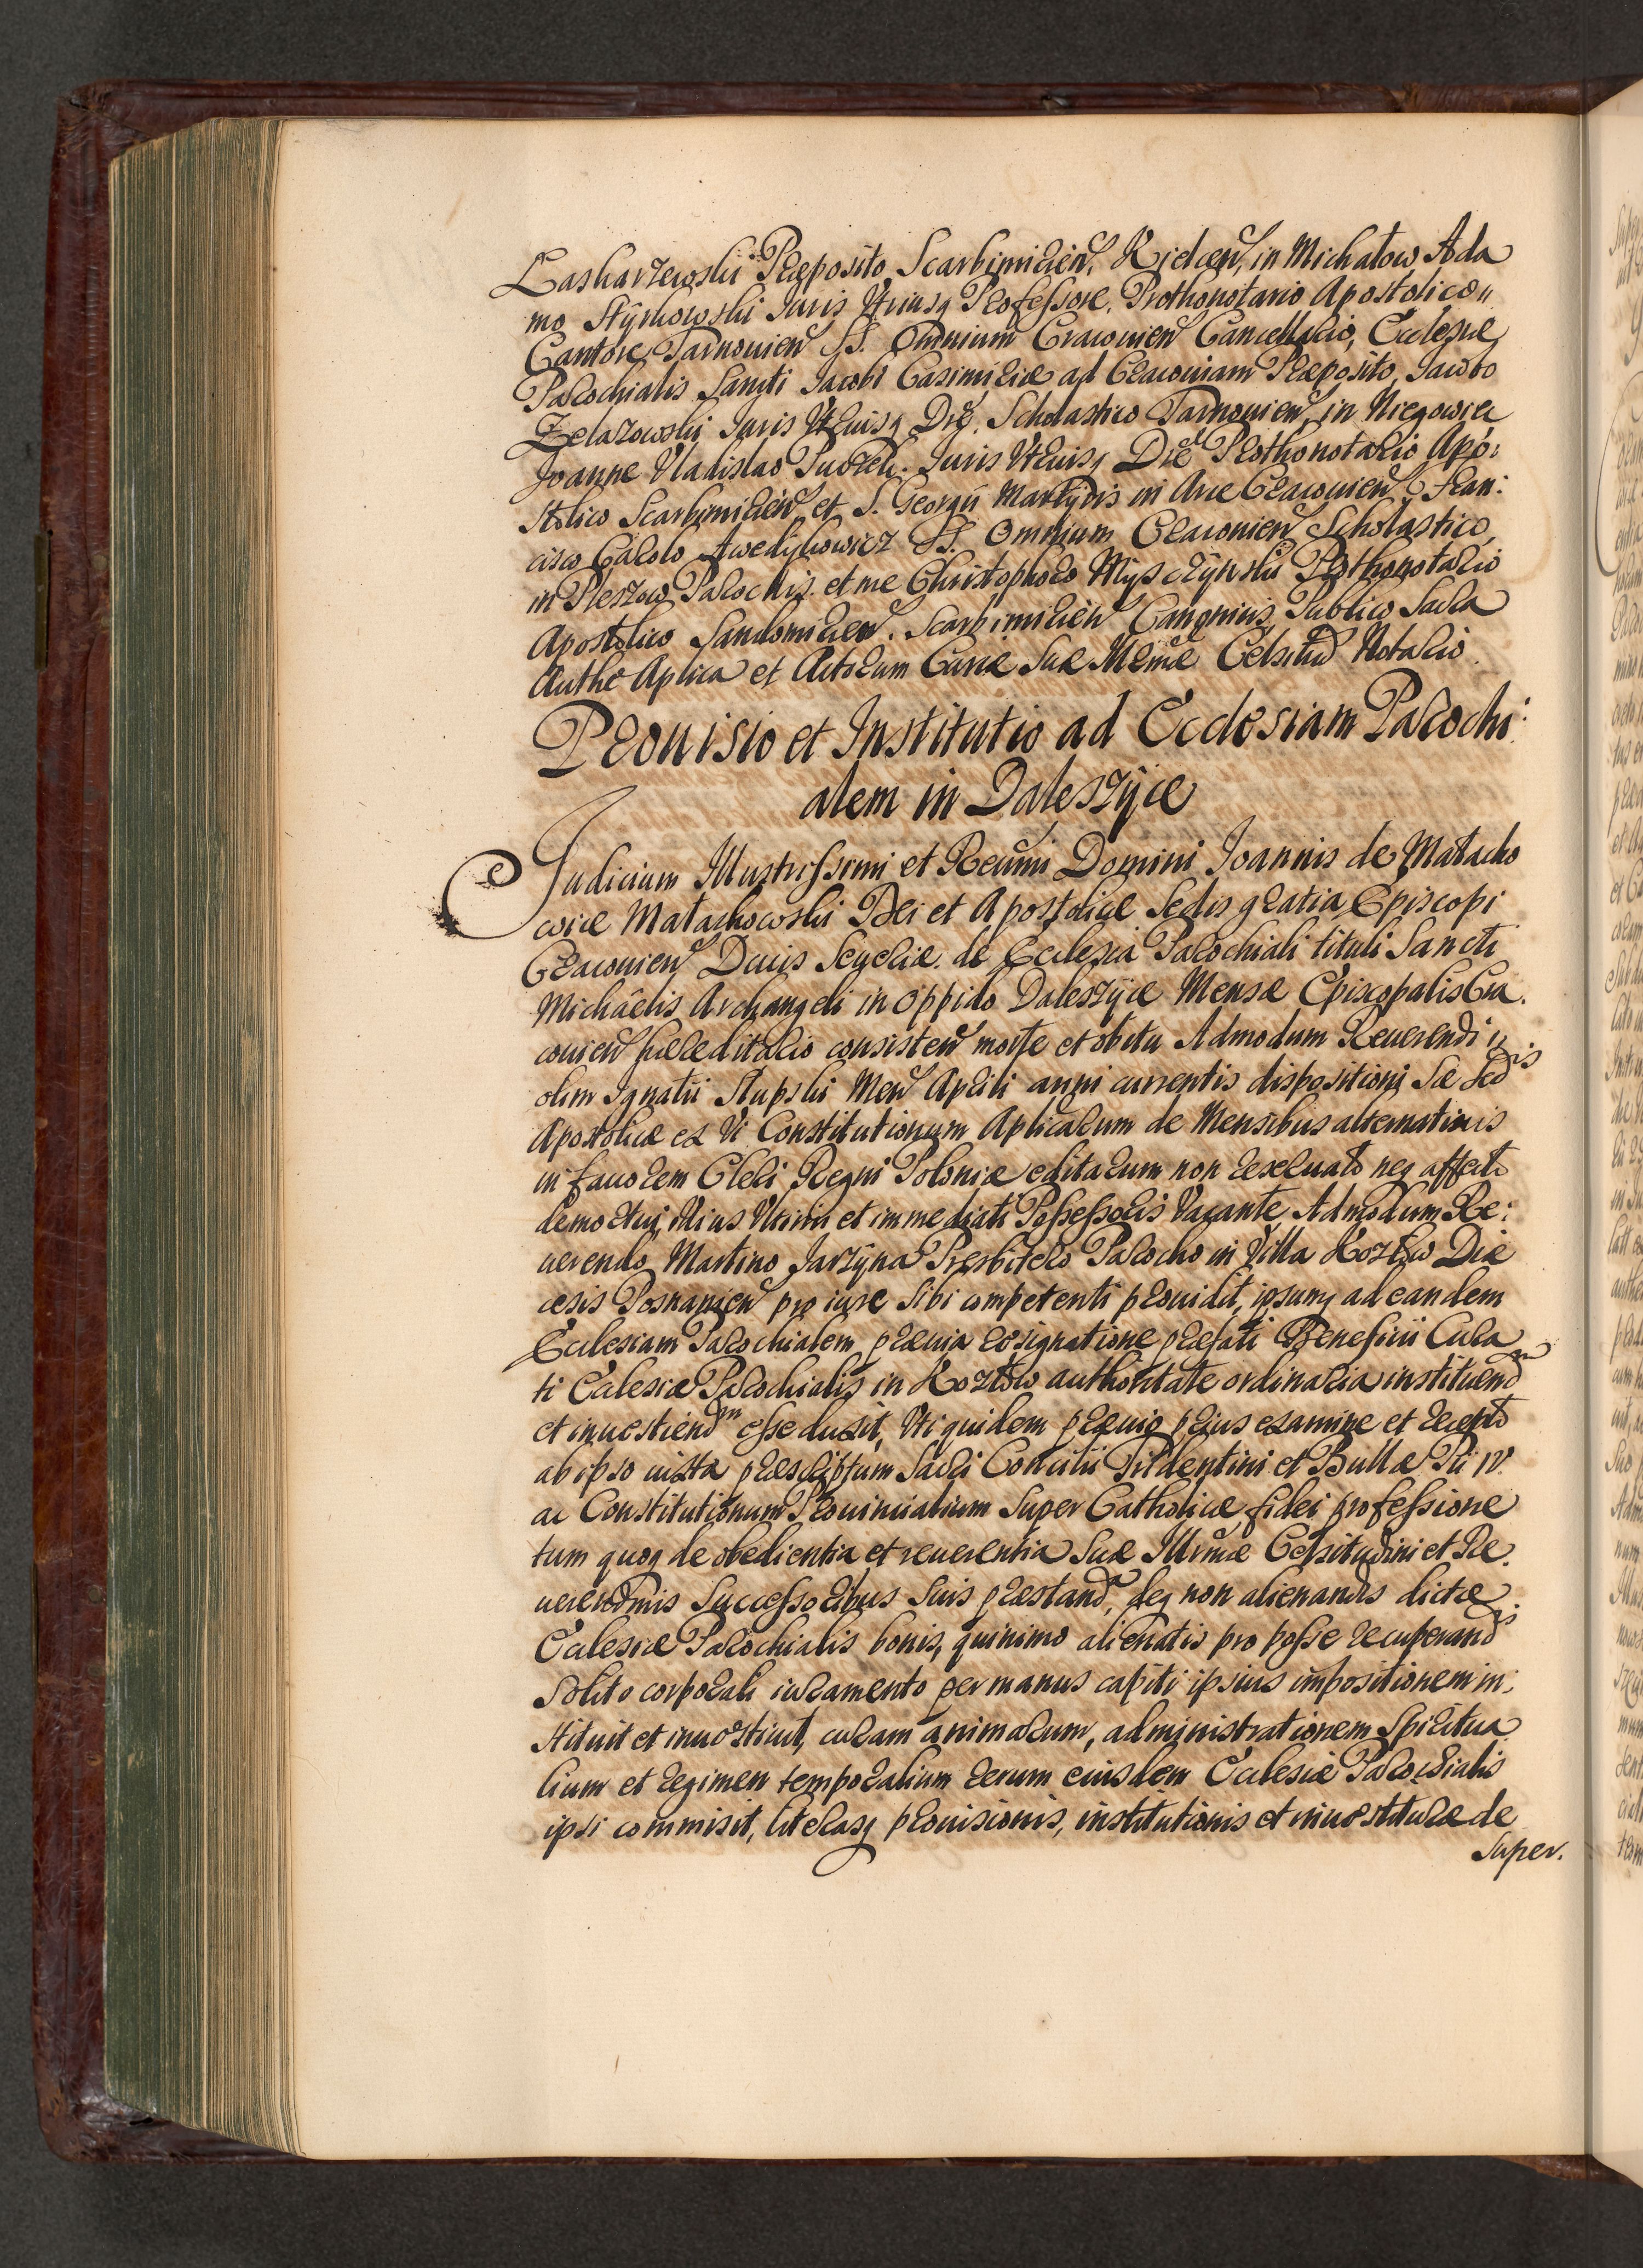 Laskarzewski Præposito Scarbimirien, Kielcen, in Michałow Ada
mo Styrkowski Iuris Vtriusq Professore, Prothonotario Apostolico,,
Cantore Tarnouien SS. Omnium Cracouien Cancellario, Ecclesiæ
Parochialis Sancti Iacobi Casimiriæ ad Cracouiam Præposito, Iacobo
Zelazowski Iuris Vtriusq Dre, Scholastico Tarnouien, in Niegowice
Joanne Vladislao Iuris Vtriusq Dre Prothonotario Apo:
stolico Scarbimirien, et S. Georgii Martyris in Arce Cracouien, Fran:
cisco Carolo Awedykowicz SS. Omnium Cracouien Scholastico,
in Pleszow Parochis. et me Christophoro Myszczynski Prothonotario
Apostolico Sandomirien. Scarbimirien Canonicis, Publico Sacra
Authe Aplica et Actorum Curiæ Suæ Illmæ Celsitud Notario.
Prouisio et Institutio ad Ecclesiam Parochi:
alem in Daleszÿce
Judicium Illustrissimi et Reũmi Domini Joannis de Małacho
wice Małachowski Dei et Apostolicæ Sedis gratia Episcopi
Cracouien, Ducis Seueriæ. de Ecclesia Parochiali tituli Sancti
Michaëlis Archangeli in oppido Daleszÿce Mensæ Episcopalis Cra.
couien hæreditario consisten morte et obitu Admodum Reuerendi
olim Ignatii Słupski Men Aprili anni currentis dispositioni Sæ Sedis
Apostolicæ ex Vi Constitutionum Aplicarum de Mensibus alternatiuis
in fauorem Cleri Regni Poloniæ editarum non reseruato neq affecto
demortui, illius Vltimi et immediati Possessoris Vacante Admodum Re:
uerendo Martino Jarzÿna Presbitero Parocho in Villa Kozłow Diæ
cesis Posnanien pro iure sibi competenti prouidit, ipsumq ad eandem
Ecclesiam Parochialem præuia resignatione præfati Beneficii Cura
ti Ecclesiæ Parochialis in Kozłow authoritate ordinaria instituendm
et inuestiendm esse duxit, Vti quidem præuio prius examine et recepto
ab ipso iuxta præscriptum Sacri Concilii Tridentini et Bullæ Pii IV.
ac Constitutionum Prouincialium super Catholicæ fidei professione
tum quoq de obedientia et reuerentia Suæ Illrmæ Celsitudini et Re.
uerendmis Successoribus suis præstand, deq non alienandis dictæ
Ecclesiæ Parochialis bonis, quinimo alienatis pro posse recuperandis
solito corporali iuramento per manus capiti ipsius impositionem in:
stituit et inuestiuit, curam animarum, administrationem Spiritua
lium et regimen temporalium rerum eiusdem Ecclesiæ Parochialis
ipsi commisit, literasq prouisionis, institutionis et inuestituræ de
super.